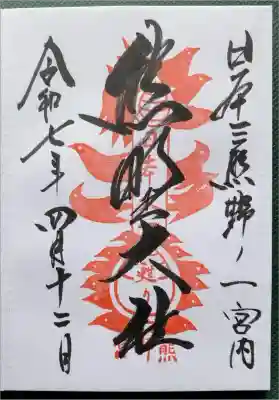 日本三熊野ノ一 宮内
熊野大社
令和七年四月十二日
甦り
熊